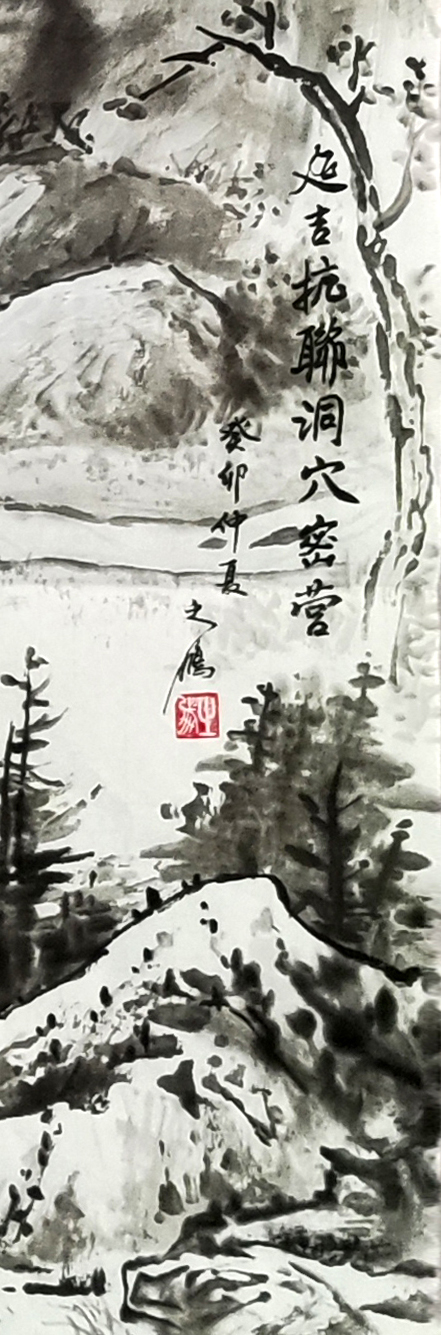 延吉抗聯洞穴密营
癸卯仲夏
之鴻